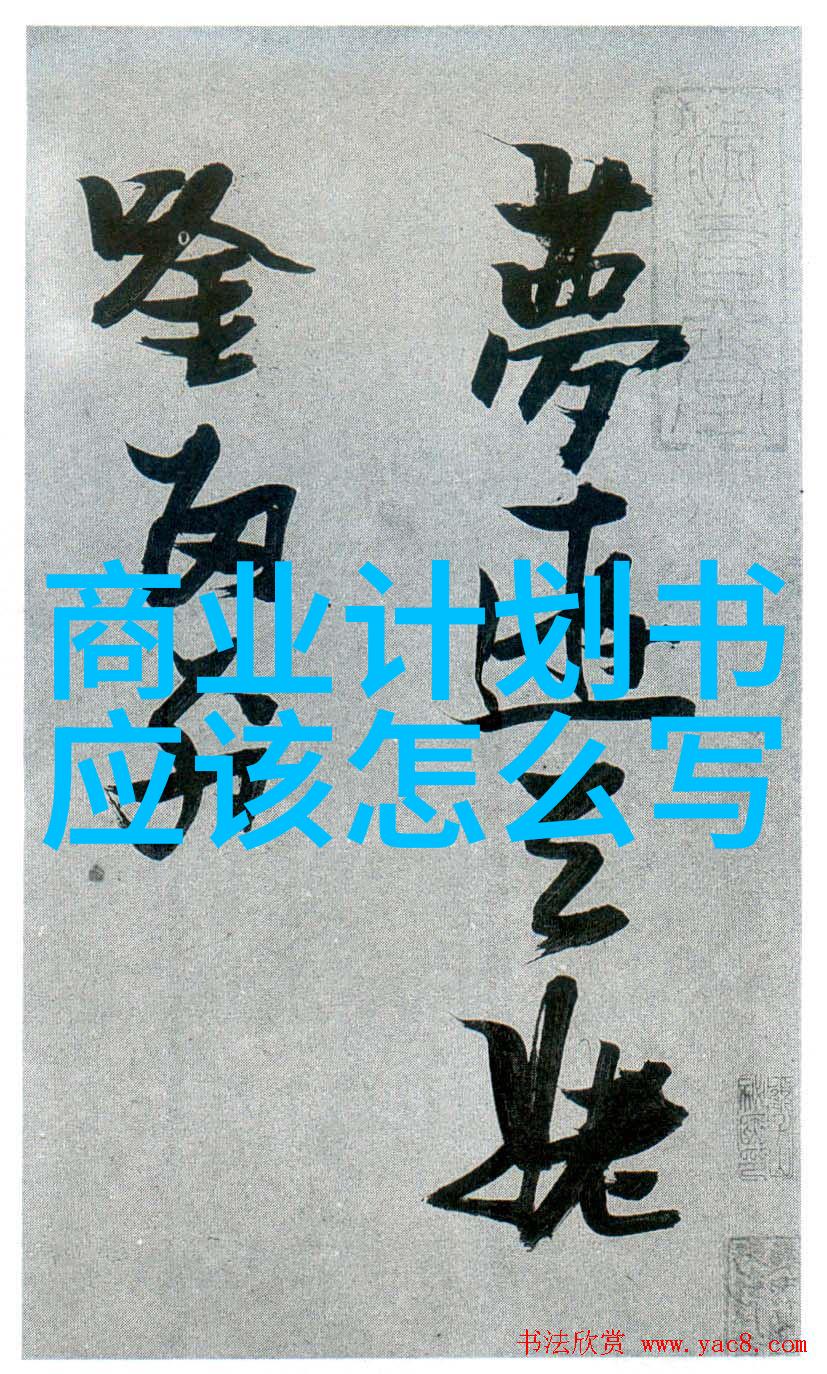 夢遊天姥
唫留別
商业计划书
应该怎么写
书法欣赏 www.yac8.com